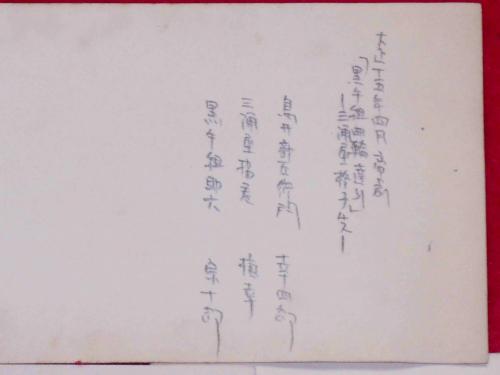 大正十五年四月 帝劇
「黒手組曲輪達引」
―三浦屋格子先―
鳥井新左衛門 幸四郎
三浦屋揚巻 梅幸
黒手組助六 宗十郎